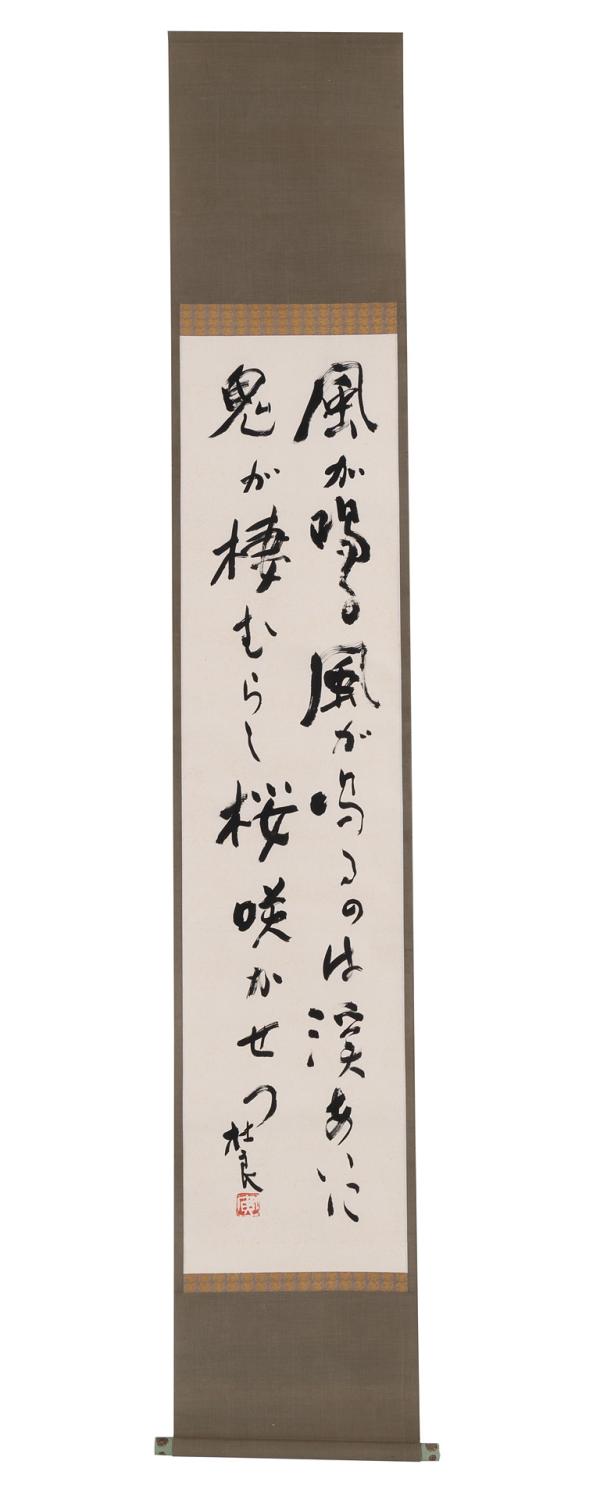 風が鳴る風が鳴るのは渓あいに
鬼が棲むらし桜咲かせつ
杜良